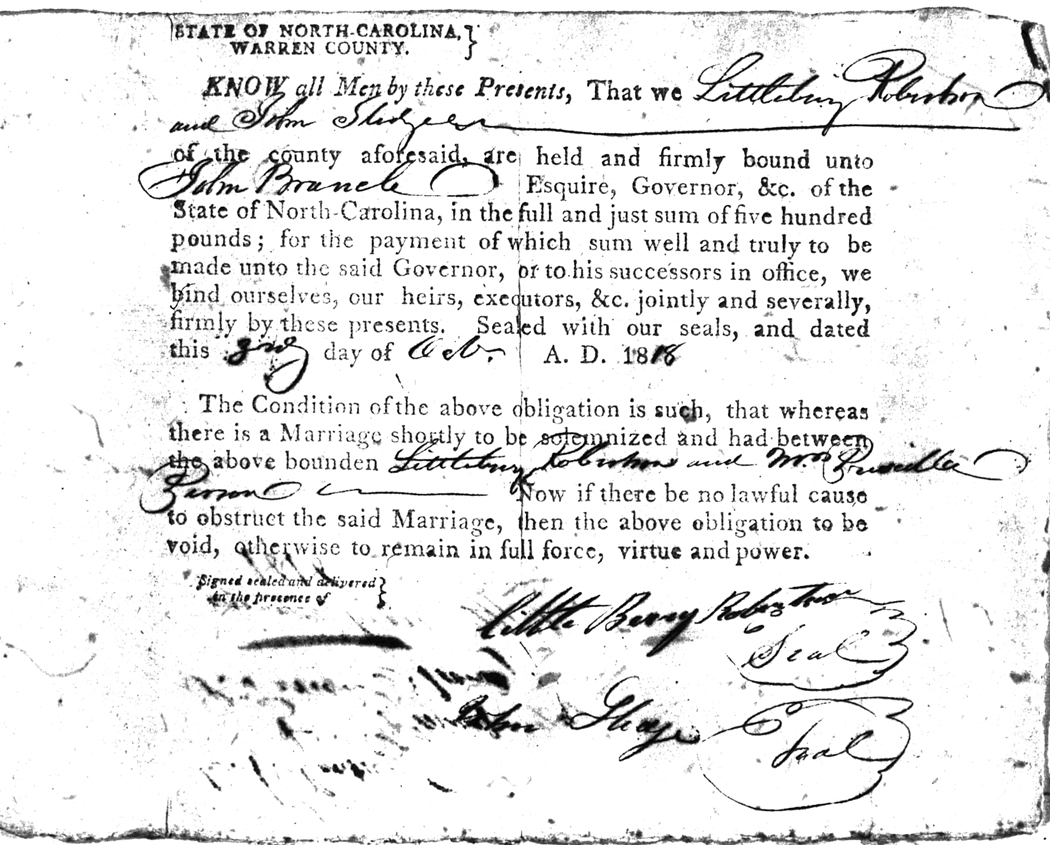 STATE OF NORTH-CAROLINA, }
WARREN COUNTY.
KNOW all Men by these Presents, That we Littlebury Robertson
and John Sledge
of the county aforesaid, are held and firmly bound unto
John Branch Esquire, Governor, &c. of the
State of North-Carolina, in the full and just sum of five hundred
pounds; for the payment of which sum well and truly to be
made unto the said Governor, or to his successors in office, we
bind ourselves, our heirs, executors, &c. jointly and severally,
firmly by these presents. Sealed with our seals, and dated
this day of A. D. 1818
The Condition of the above obligation is such, that whereas
there is a Marriage shortly to be solemnized and had between
the above bounden Littlebury Robertson and Mrs Priscilla
Now if there be no lawful cause
to obstruct the said Marriage, then the above obligation to be
void, otherwise to remain in full force, virtue and power.
Signed sealed and delivered }
in the presence of
Little Berry Robertson
Seal
John Sledge
Seal